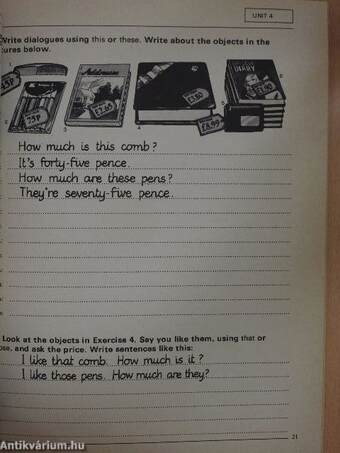 UNIT 4
Write dialogues using this or these. Write about the objects in the
tures below.
45p
75p
Address
£2.65
£3.50
£8.99
DIARY
How much is this comb?
It's forty-five pence.
How much are these pens?
They're seventy-five pence.
Look at the objects in Exercise 4. Say you like them, using that or
ose, and ask the price. Write sentences like this:
I like that comb. How much is it?
I like those pens. How much are they?
21
Antikvárium.hu